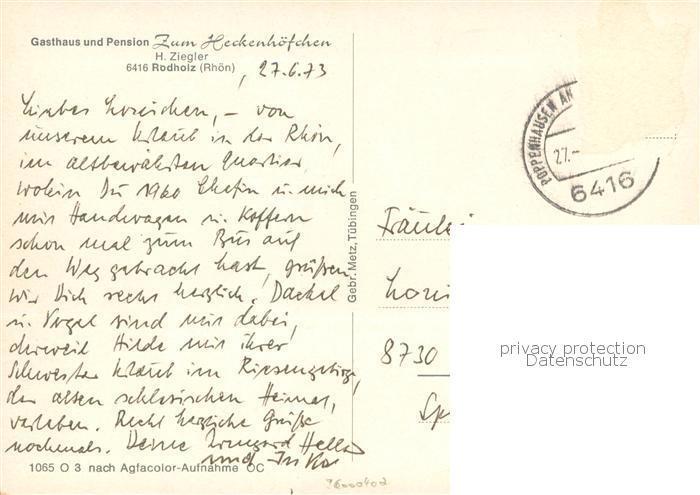 Gasthaus und Pension Zum Heckenhöfchen
H. Ziegler
6416 Rodholz (Rhön)
, 27.6.73
Liebes Lorchen, – von
unserem Urlaub in der Rhön,
im altbewährten Quartier,
wohin Du 1960 Stefin u. mich
mit Handwagen u. Koffern
schon mal zum Bus auf
den Weg gebracht hast, grüßen
wir Dich recht herzlich! Dackel
u. Vogel sind mit dabei,
derweil Hilde mit ihrer
Schwester Urlaub im Riesengebirge,
der alten schlesischen Heimat,
verleben. Recht herzliche Grüße
nochmals. Deine Irmgard
und
1065 O 3 nach Agfacolor-Aufnahme OC
Gebr. Metz, Tübingen
POPPENHAUSEN AN
27.–
6416
Fräulei
8730
privacy protection
Datenschutz